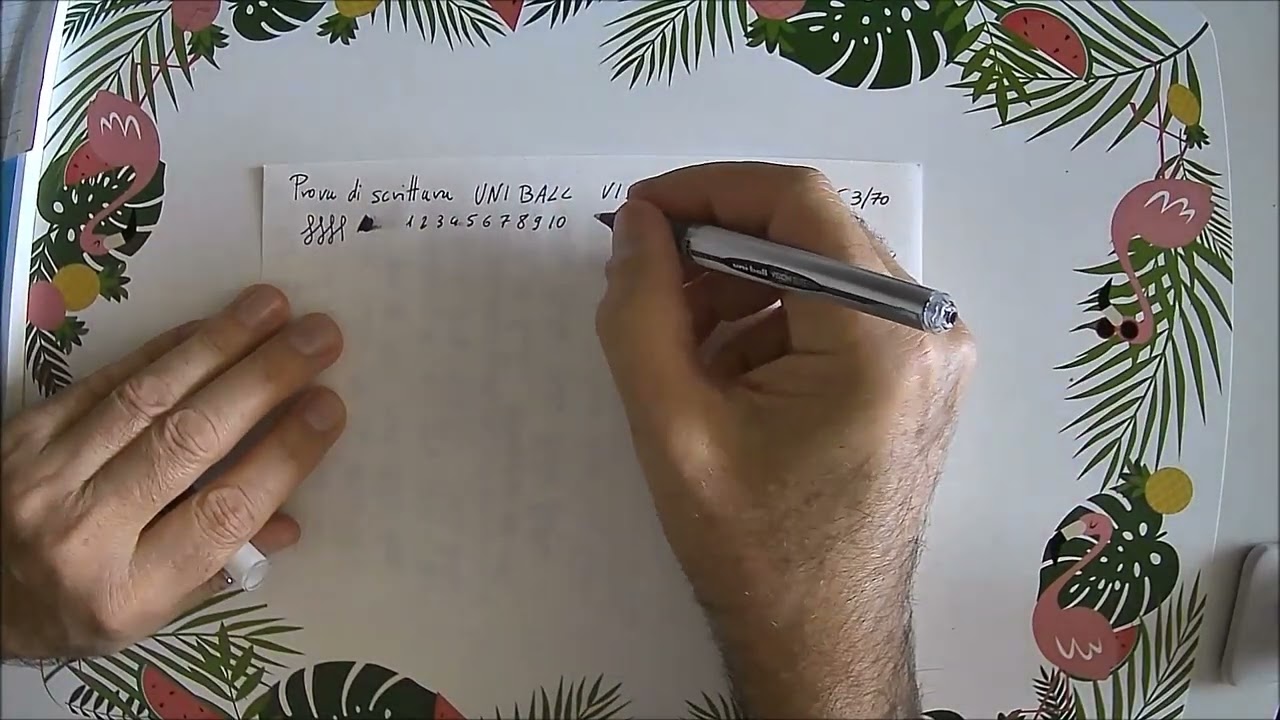 Prova di scrittura UNI BALL VI 53/70
1 2 3 4 5 6 7 8 9 10
uni-ball